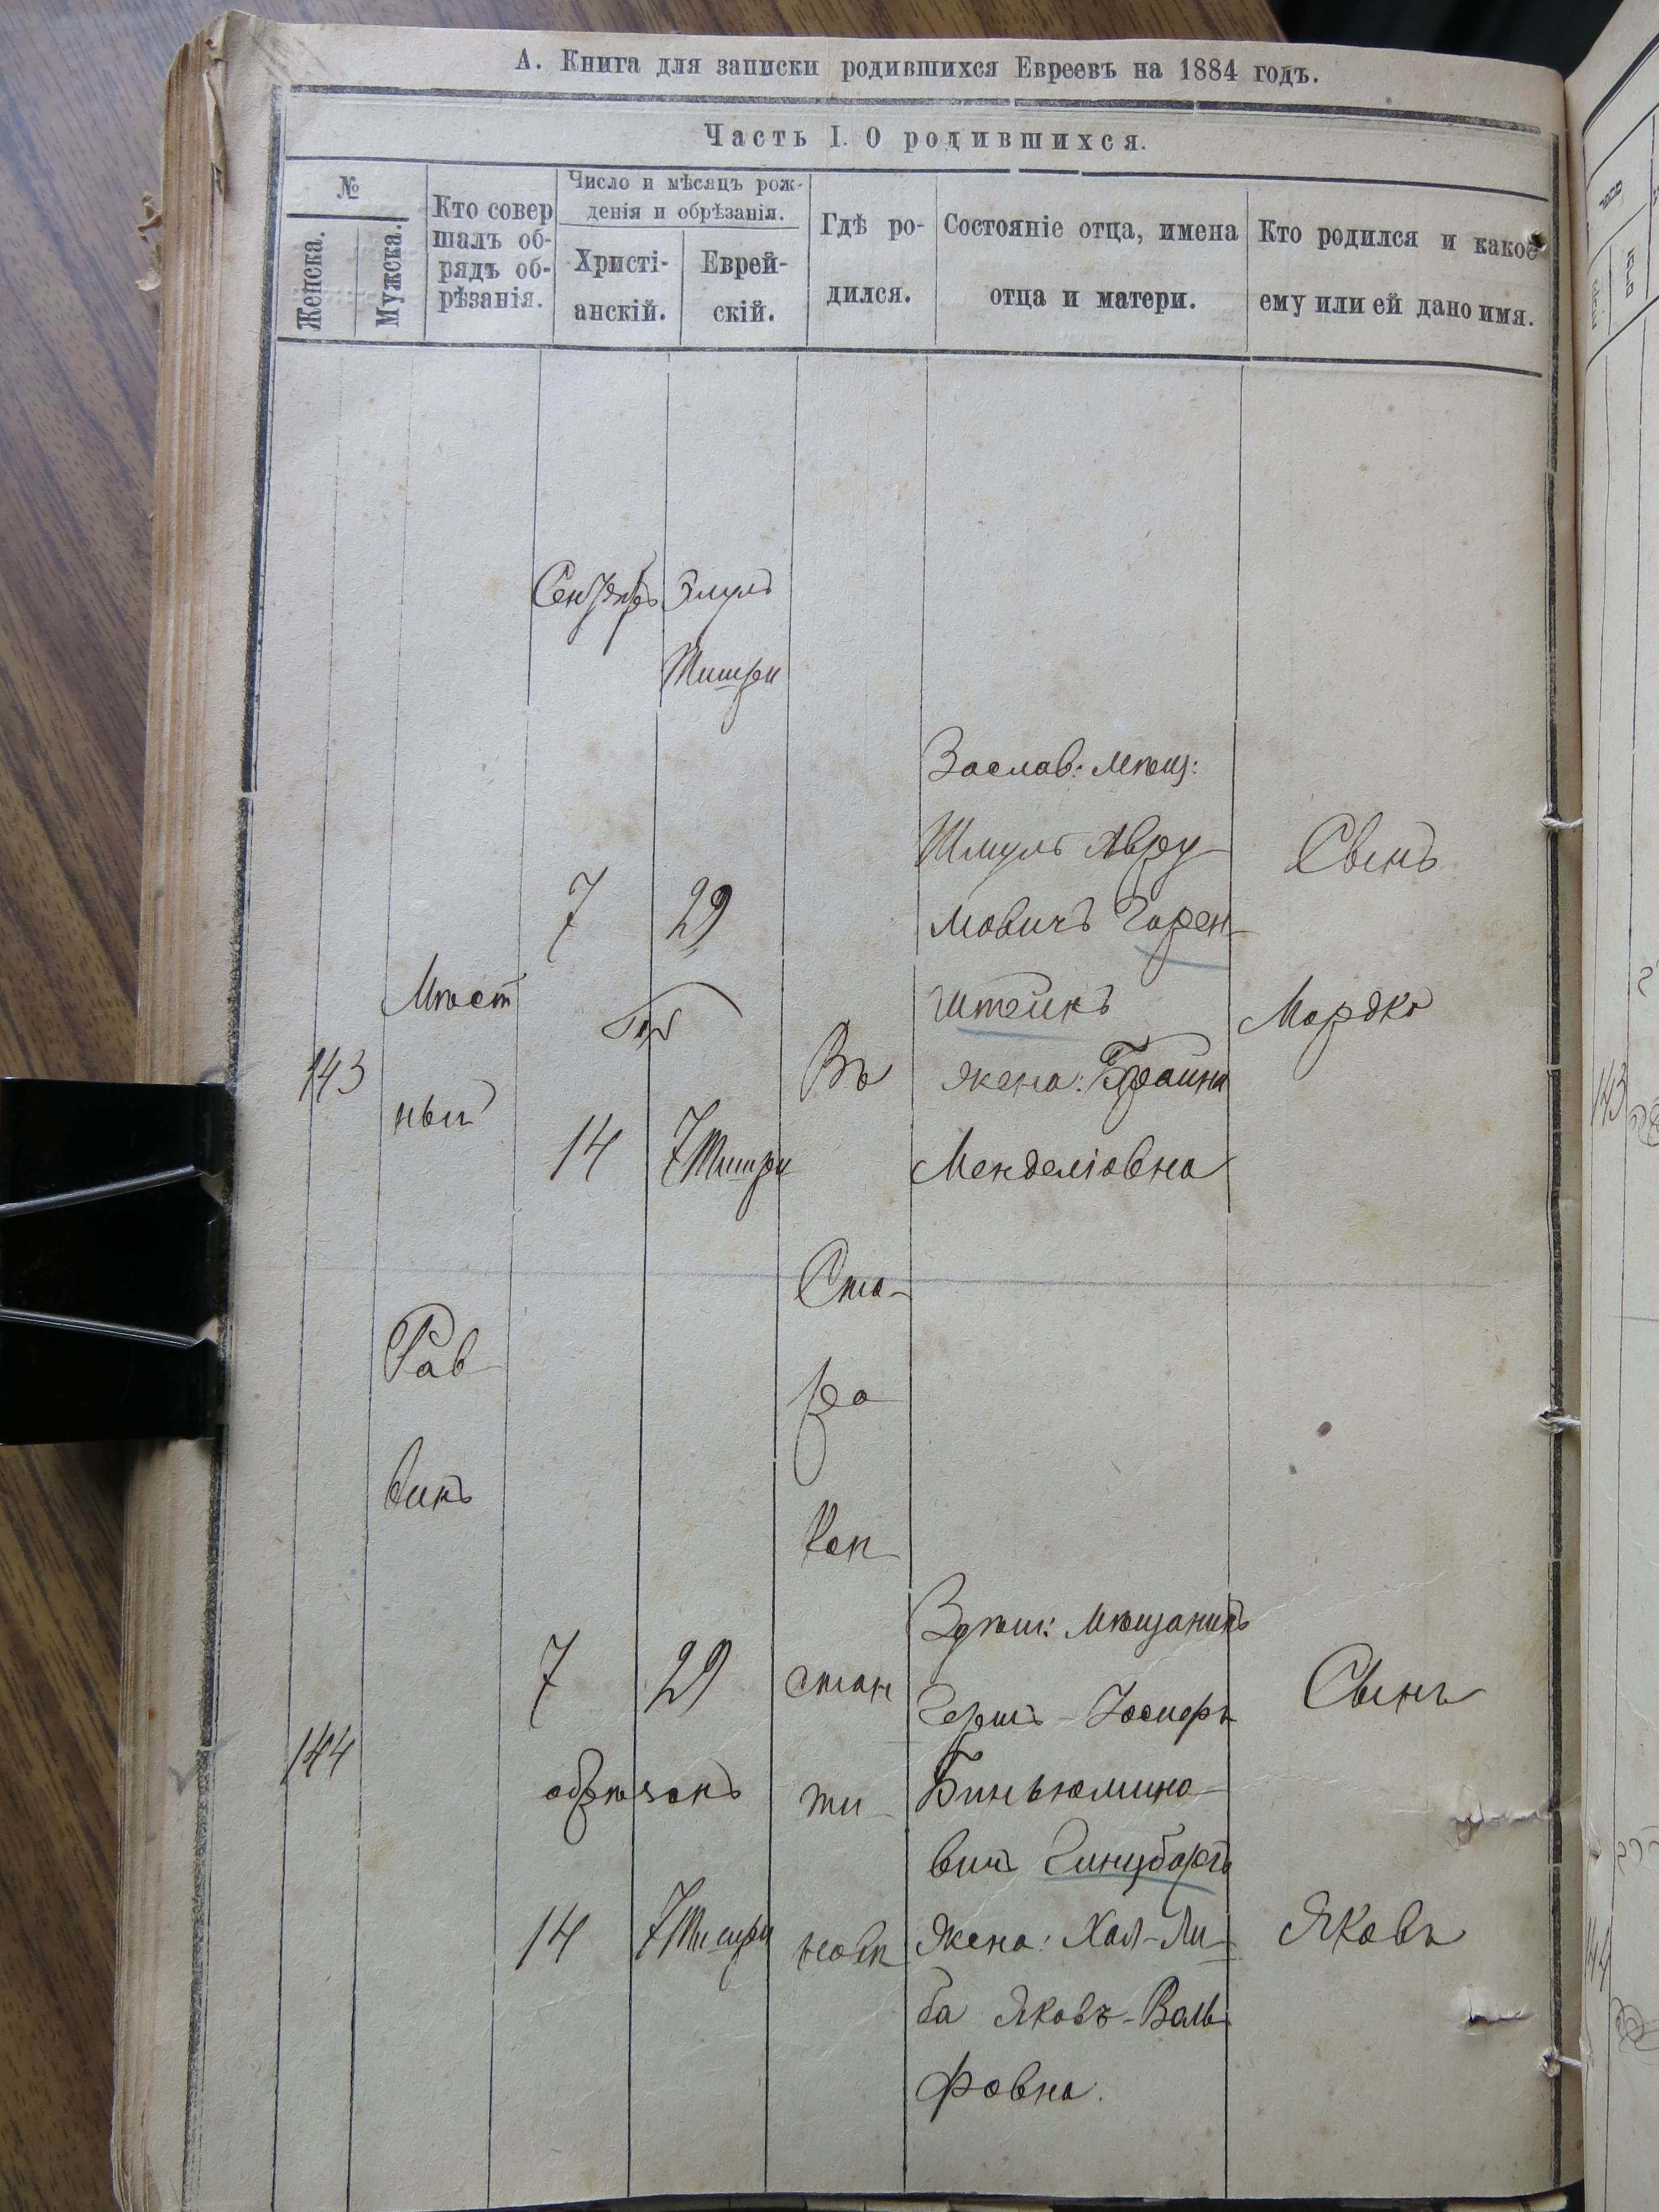 А. Книга для записки родившихся Евреевъ на 1884 годъ.
Часть I. О родившихся.
№
Женска.
Мужска.
Кто совер
шалъ об-
рядъ об-
рѣзанія.
Число и мѣсяцъ рож-
денія и обрѣзанія.
Христі-
анскій.
Еврей-
скій.
Гдѣ ро-
дился.
Состояніе отца, имена
отца и матери.
Кто родился и какое
ему или ей дано имя.
Сентябрь Элулъ
Тишри
143
Мѣст
ный
Рав
винъ
7 29
14 7 Тишри
Въ
Ста-
ро
Кон
стан
ти-
новѣ
Заслав: мѣщ:
Шмулъ Авру-
мовичъ Горен-
штейнъ
жена: Браина
Менделіовна
Сынъ
Мордко
144
7 29
обрѣзанъ
14 7 Тишри
мѣщанинъ
Гершъ-Іосифъ
Биньюмино-
вичъ Гинцбаргъ
Жена: Хая-Ли-
ба Яковъ-Воль
фовна.
Сынъ
Яковъ
143
144